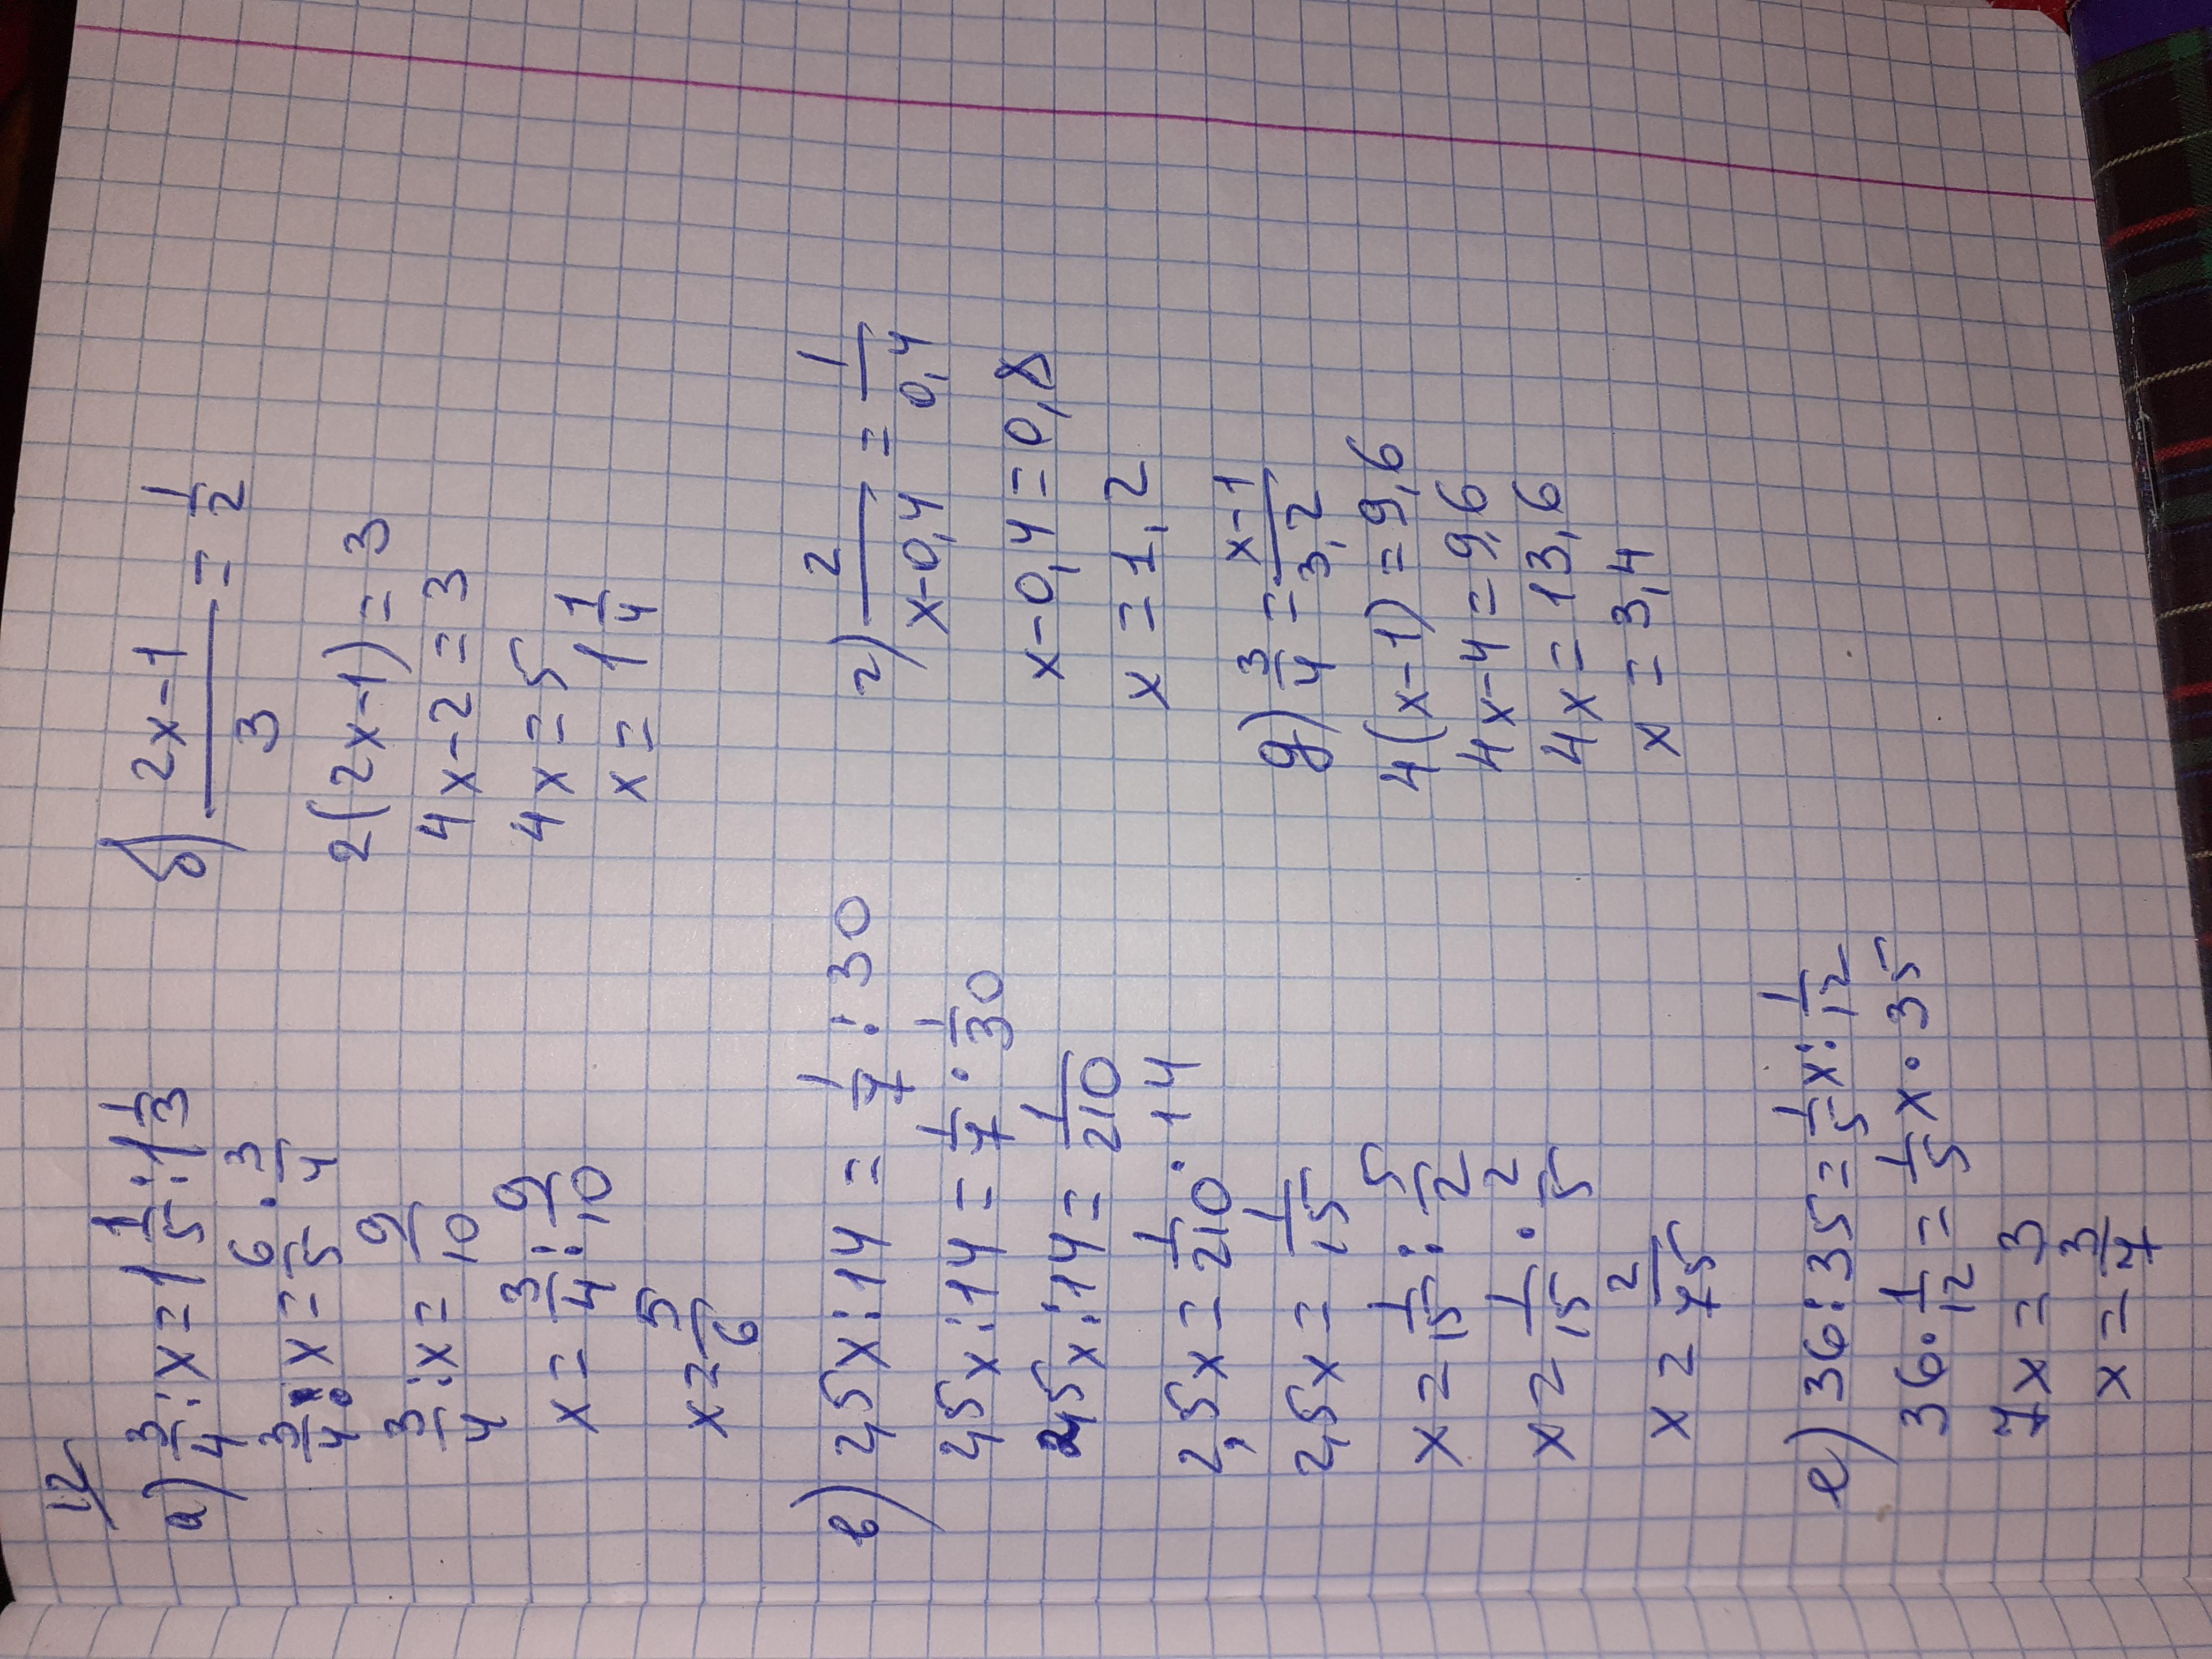 12
а) 3/4 : x = 1 1/5 : 1 1/3
3/4 : x = 6/5 · 3/4
3/4 : x = 9/10
x = 3/4 : 9/10
x = 5/6
б) (2x-1)/3 = 1/2
2(2x-1) = 3
4x-2 = 3
4x = 5
x = 1 1/4
в) 2,5x : 14 = 1/7 : 30
2,5x : 14 = 1/7 · 1/30
2,5x : 14 = 1/210
2,5x = 1/210 · 14
2,5x = 1/15
x = 1/15 : 5/2
x = 1/15 · 2/5
x = 2/75
г) 2/(x-0,4) = 1/0,4
x-0,4 = 0,8
x = 1,2
д) 3/4 = (x-1)/3,2
4(x-1) = 9,6
4x-4 = 9,6
4x = 13,6
x = 3,4
е) 36 : 35 = 1/5x : 1/12
36 · 1/12 = 1/5x · 35
7x = 3
x = 3/7